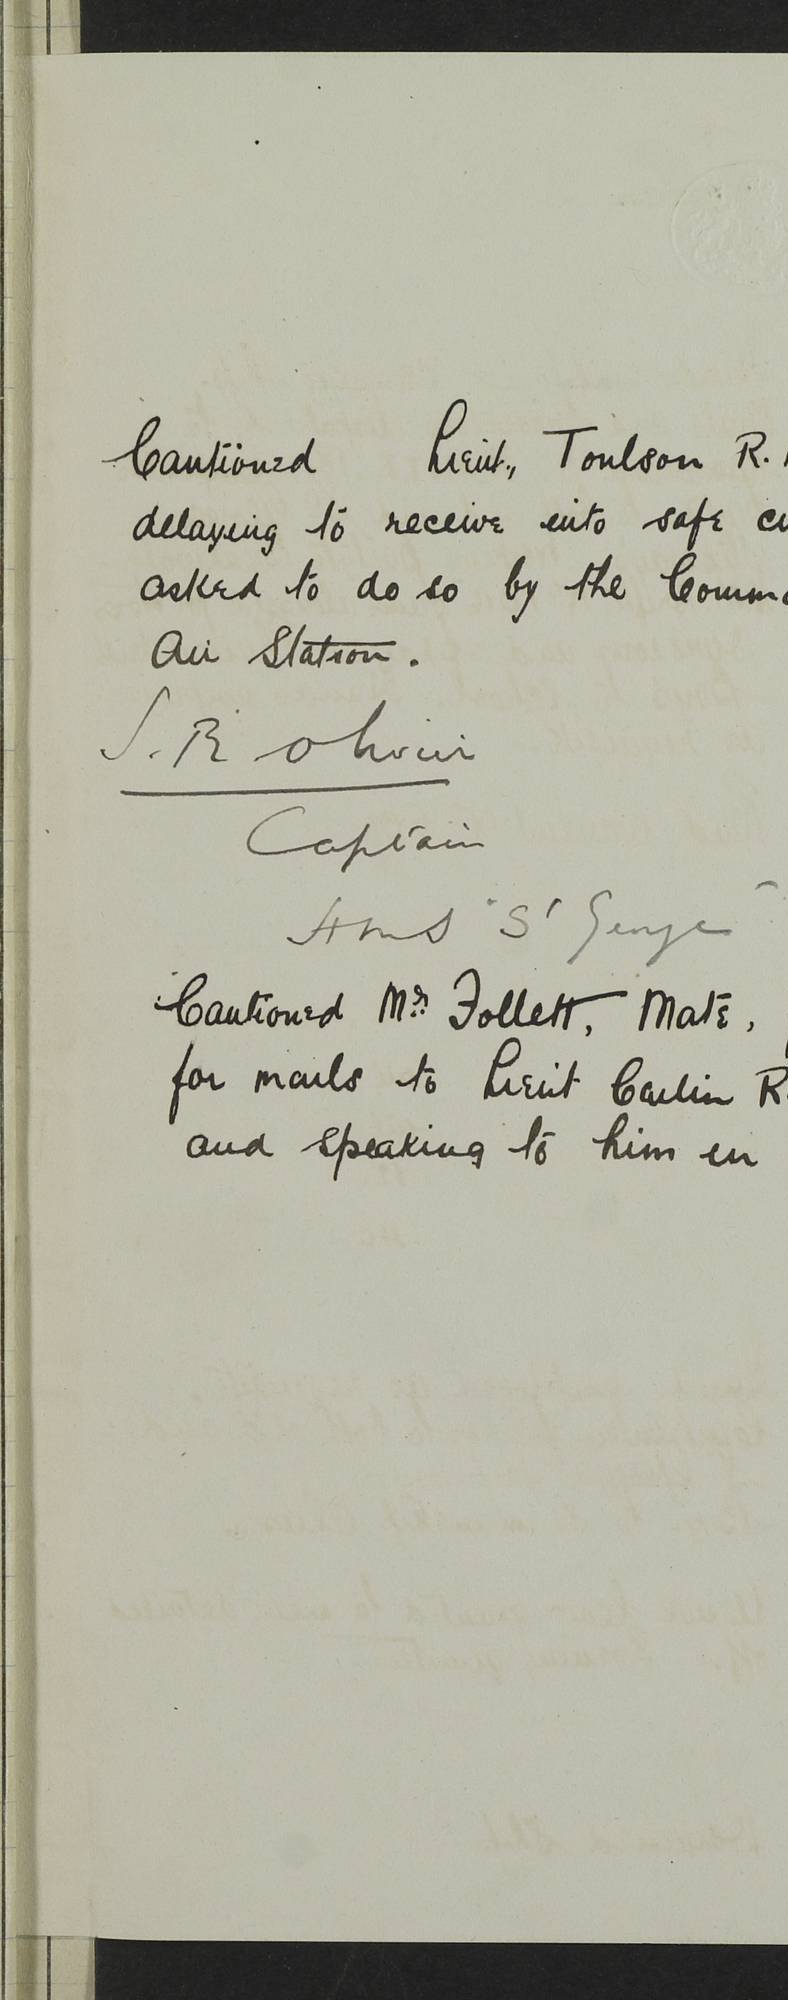 Cautioned Lieut., Toulson R.
delaying to receive into safe cu
asked to do so by the Comma
Air Station.
S. R. Olivier
Captain
HMS "St George"
Cautioned Mr. Follett, Mate,
for mails to Lieut Carlin R.
and speaking to him in